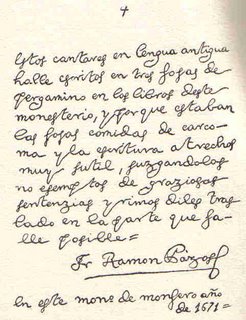 4
estos cantares en lengua antigua
halle escritos en tres fojas de
pergamino en los libros deste
monesterio, y porque estaban
las fojas comidas de carco-
ma y la escritura a trechos
muy sutil, juzgandolos
no esemptos de graziosas
sentenzias y rimos diles tras
lado en la parte que fa-
lle posille=
Fr Ramon
en este mons de monfero año
de 1671=